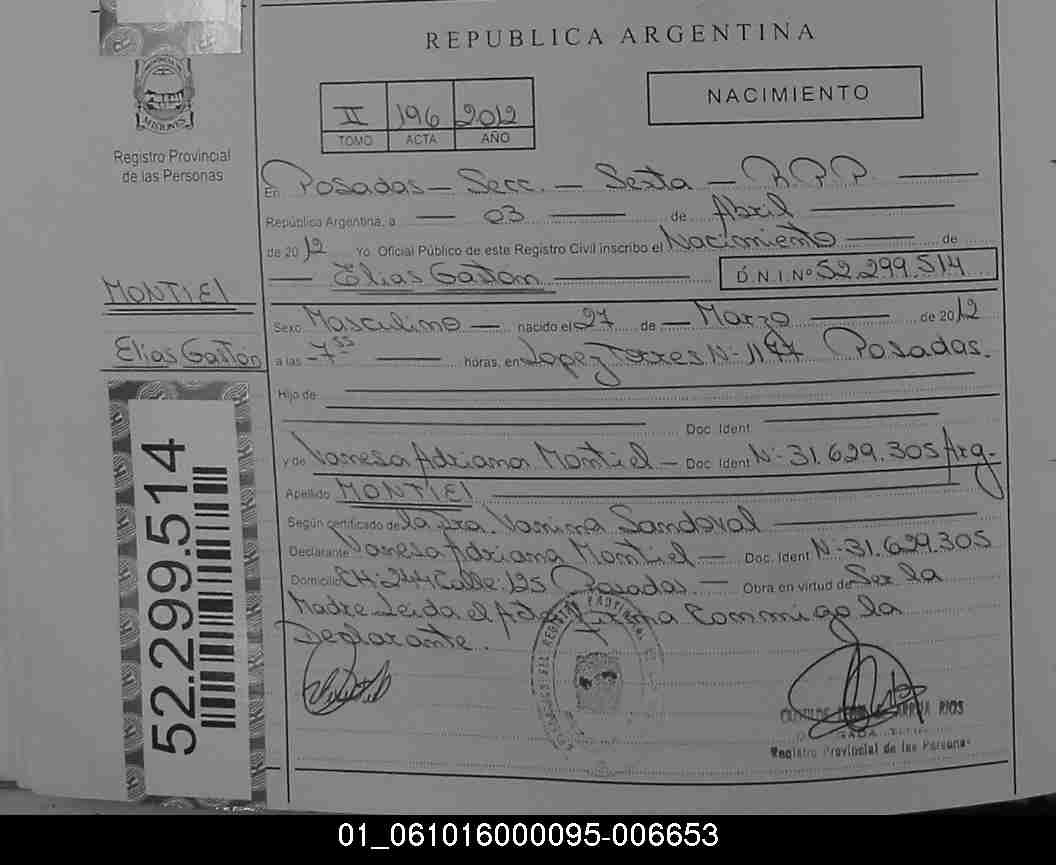 REPUBLICA ARGENTINA
NACIMIENTO
II 196 2012
TOMO ACTA AÑO
MISIONES
Registro Provincial
de las Personas
En Posadas - Secc. - Sexta - R.P.P.
República Argentina, a 03 de Abril
de 2012 Yo, Oficial Público de este Registro Civil inscribo el Nacimiento de
Elias Gastón D.N.I.Nº 52.299.514
MONTIEL
Elias Gastón
Sexo Masculino - nacido el 27 de - Marzo de 2012
a las 7 55 horas, en Lopez Torres Nº 1177 Posadas.
Hijo de
Doc. Ident.
y de Vanesa Adriana Montiel - Doc. Ident Nº 31.629.305 Arg.
Apellido MONTIEL
Según certificado de la Dra. Vanina Sandoval
Declarante Vanesa Adriana Montiel - Doc. Ident Nº 31.629.305
Domicilio CH: 244 Calle: 125 Posadas. - Obra en virtud de Ser la
Madre Leida el Acta Firma Conmigo la
Declarante.
52.299.514
RIOS
Registro Provincial de las Personas
01_061016000095-006653